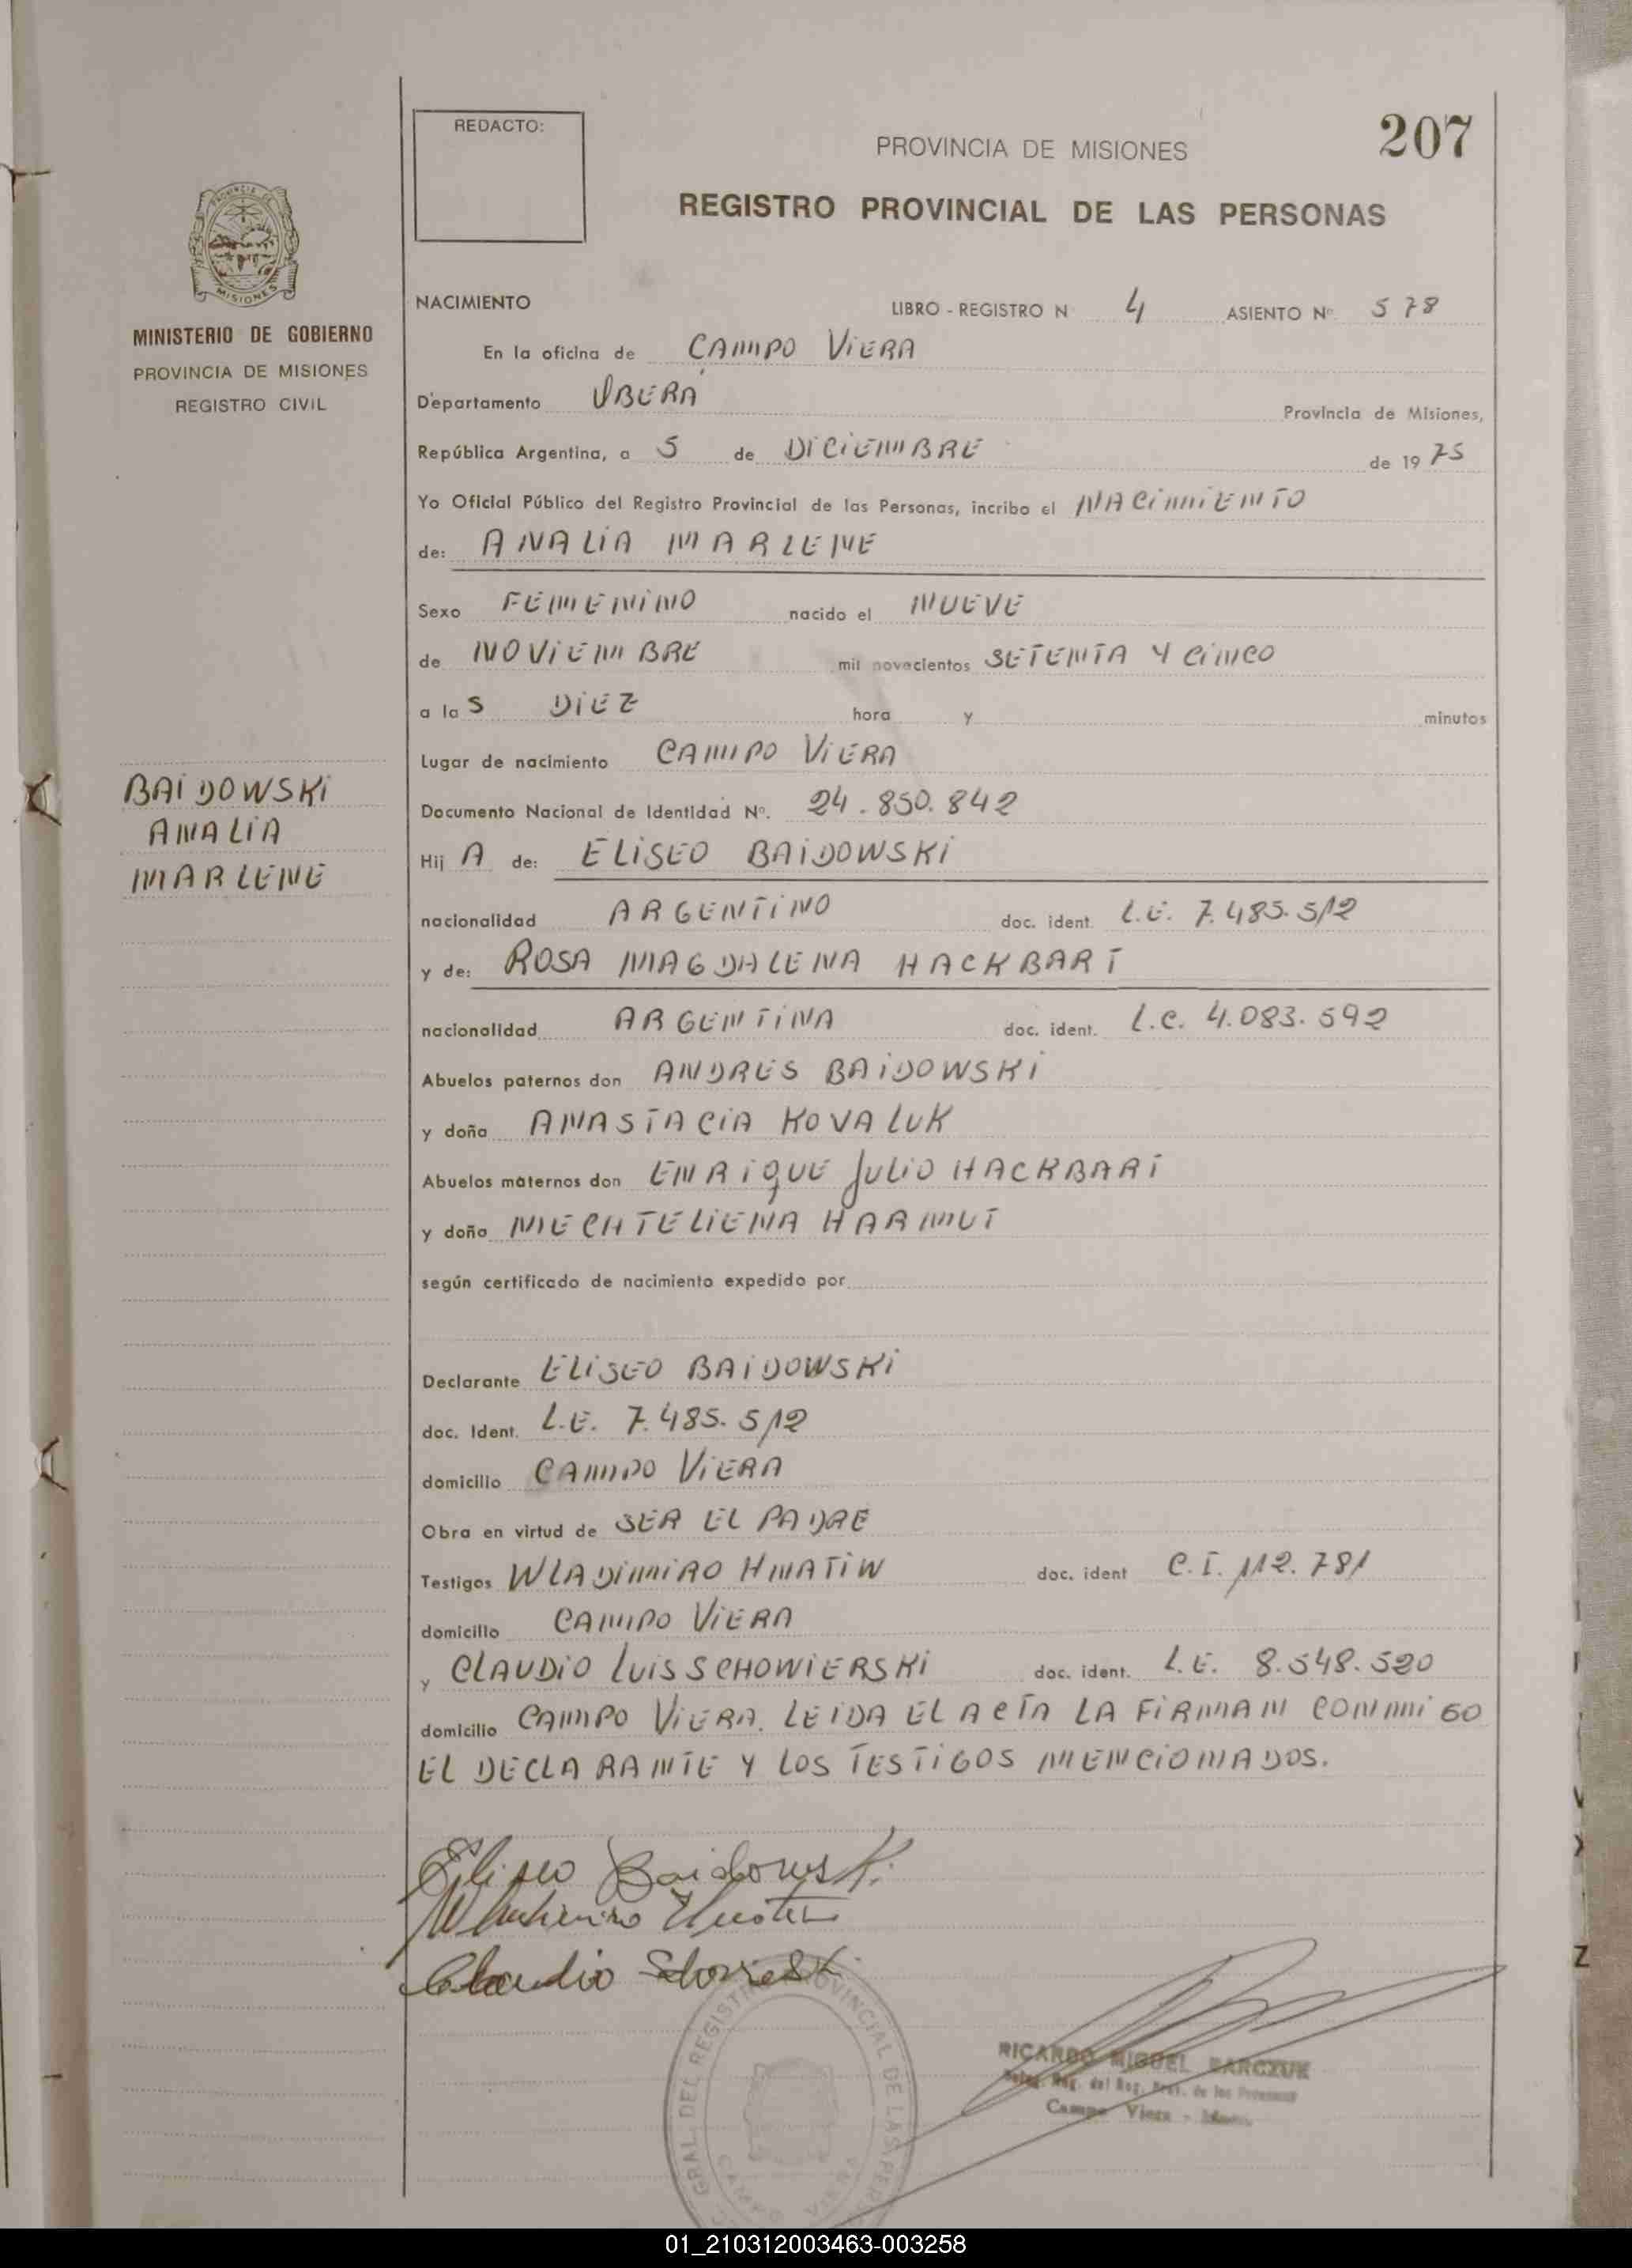 207
REDACTO:
PROVINCIA DE MISIONES
REGISTRO PROVINCIAL DE LAS PERSONAS
PROVINCIA DE
MISIONES
MINISTERIO DE GOBIERNO
PROVINCIA DE MISIONES
REGISTRO CIVIL
NACIMIENTO LIBRO - REGISTRO N 4 ASIENTO Nº 578
En la oficina de CAMPO VIERA
Departamento OBERÁ Provincia de Misiones,
República Argentina, a 5 de DICIEMBRE de 19 75
Yo Oficial Público del Registro Provincial de las Personas, incribo el NACIMIENTO
de: ANALIA MARLENE
Sexo FEMENINO nacido el NUEVE
de NOVIEMBRE mil novecientos SETENTA Y CINCO
a las DIEZ hora y minutos
Lugar de nacimiento CAMPO VIERA
Documento Nacional de Identidad Nº. 24.850.842
Hij A de: ELISEO BAIDOWSKI
nacionalidad ARGENTINO doc. ident. L.E. 7.485.512
y de: ROSA MAGDALENA HACKBART
nacionalidad ARGENTINA doc. ident. L.C. 4.083.592
Abuelos paternos don ANDRES BAIDOWSKI
y doña ANASTACIA KOVALUK
Abuelos maternos don ENRIQUE JULIO HACKBART
y doña MECHTELIENA HARMUT
según certificado de nacimiento expedido por
Declarante ELISEO BAIDOWSKI
doc. Ident. L.E. 7.485.512
domicilio CAMPO VIERA
Obra en virtud de SER EL PADRE
Testigos WLADIMIRO HNATIW doc. ident C.I. 112.781
domicilio CAMPO VIERA
y CLAUDIO LUIS SCHOWIERSKI doc. ident. L.E. 8.548.520
domicilio CAMPO VIERA. LEIDA EL ACTA LA FIRMAN CONMIGO
EL DECLARANTE Y LOS TESTIGOS MENCIONADOS.
BAIDOWSKI
ANALIA
MARLENE
Eliseo Baidowski
Claudio
GRAL. DEL REGISTRO PROVINCIAL DE LAS PERS
CAMPO VIERA
RICARDO MIGUEL BARCZUK
del Reg. Prov. de las Personas
Campo Viera
01_210312003463-003258